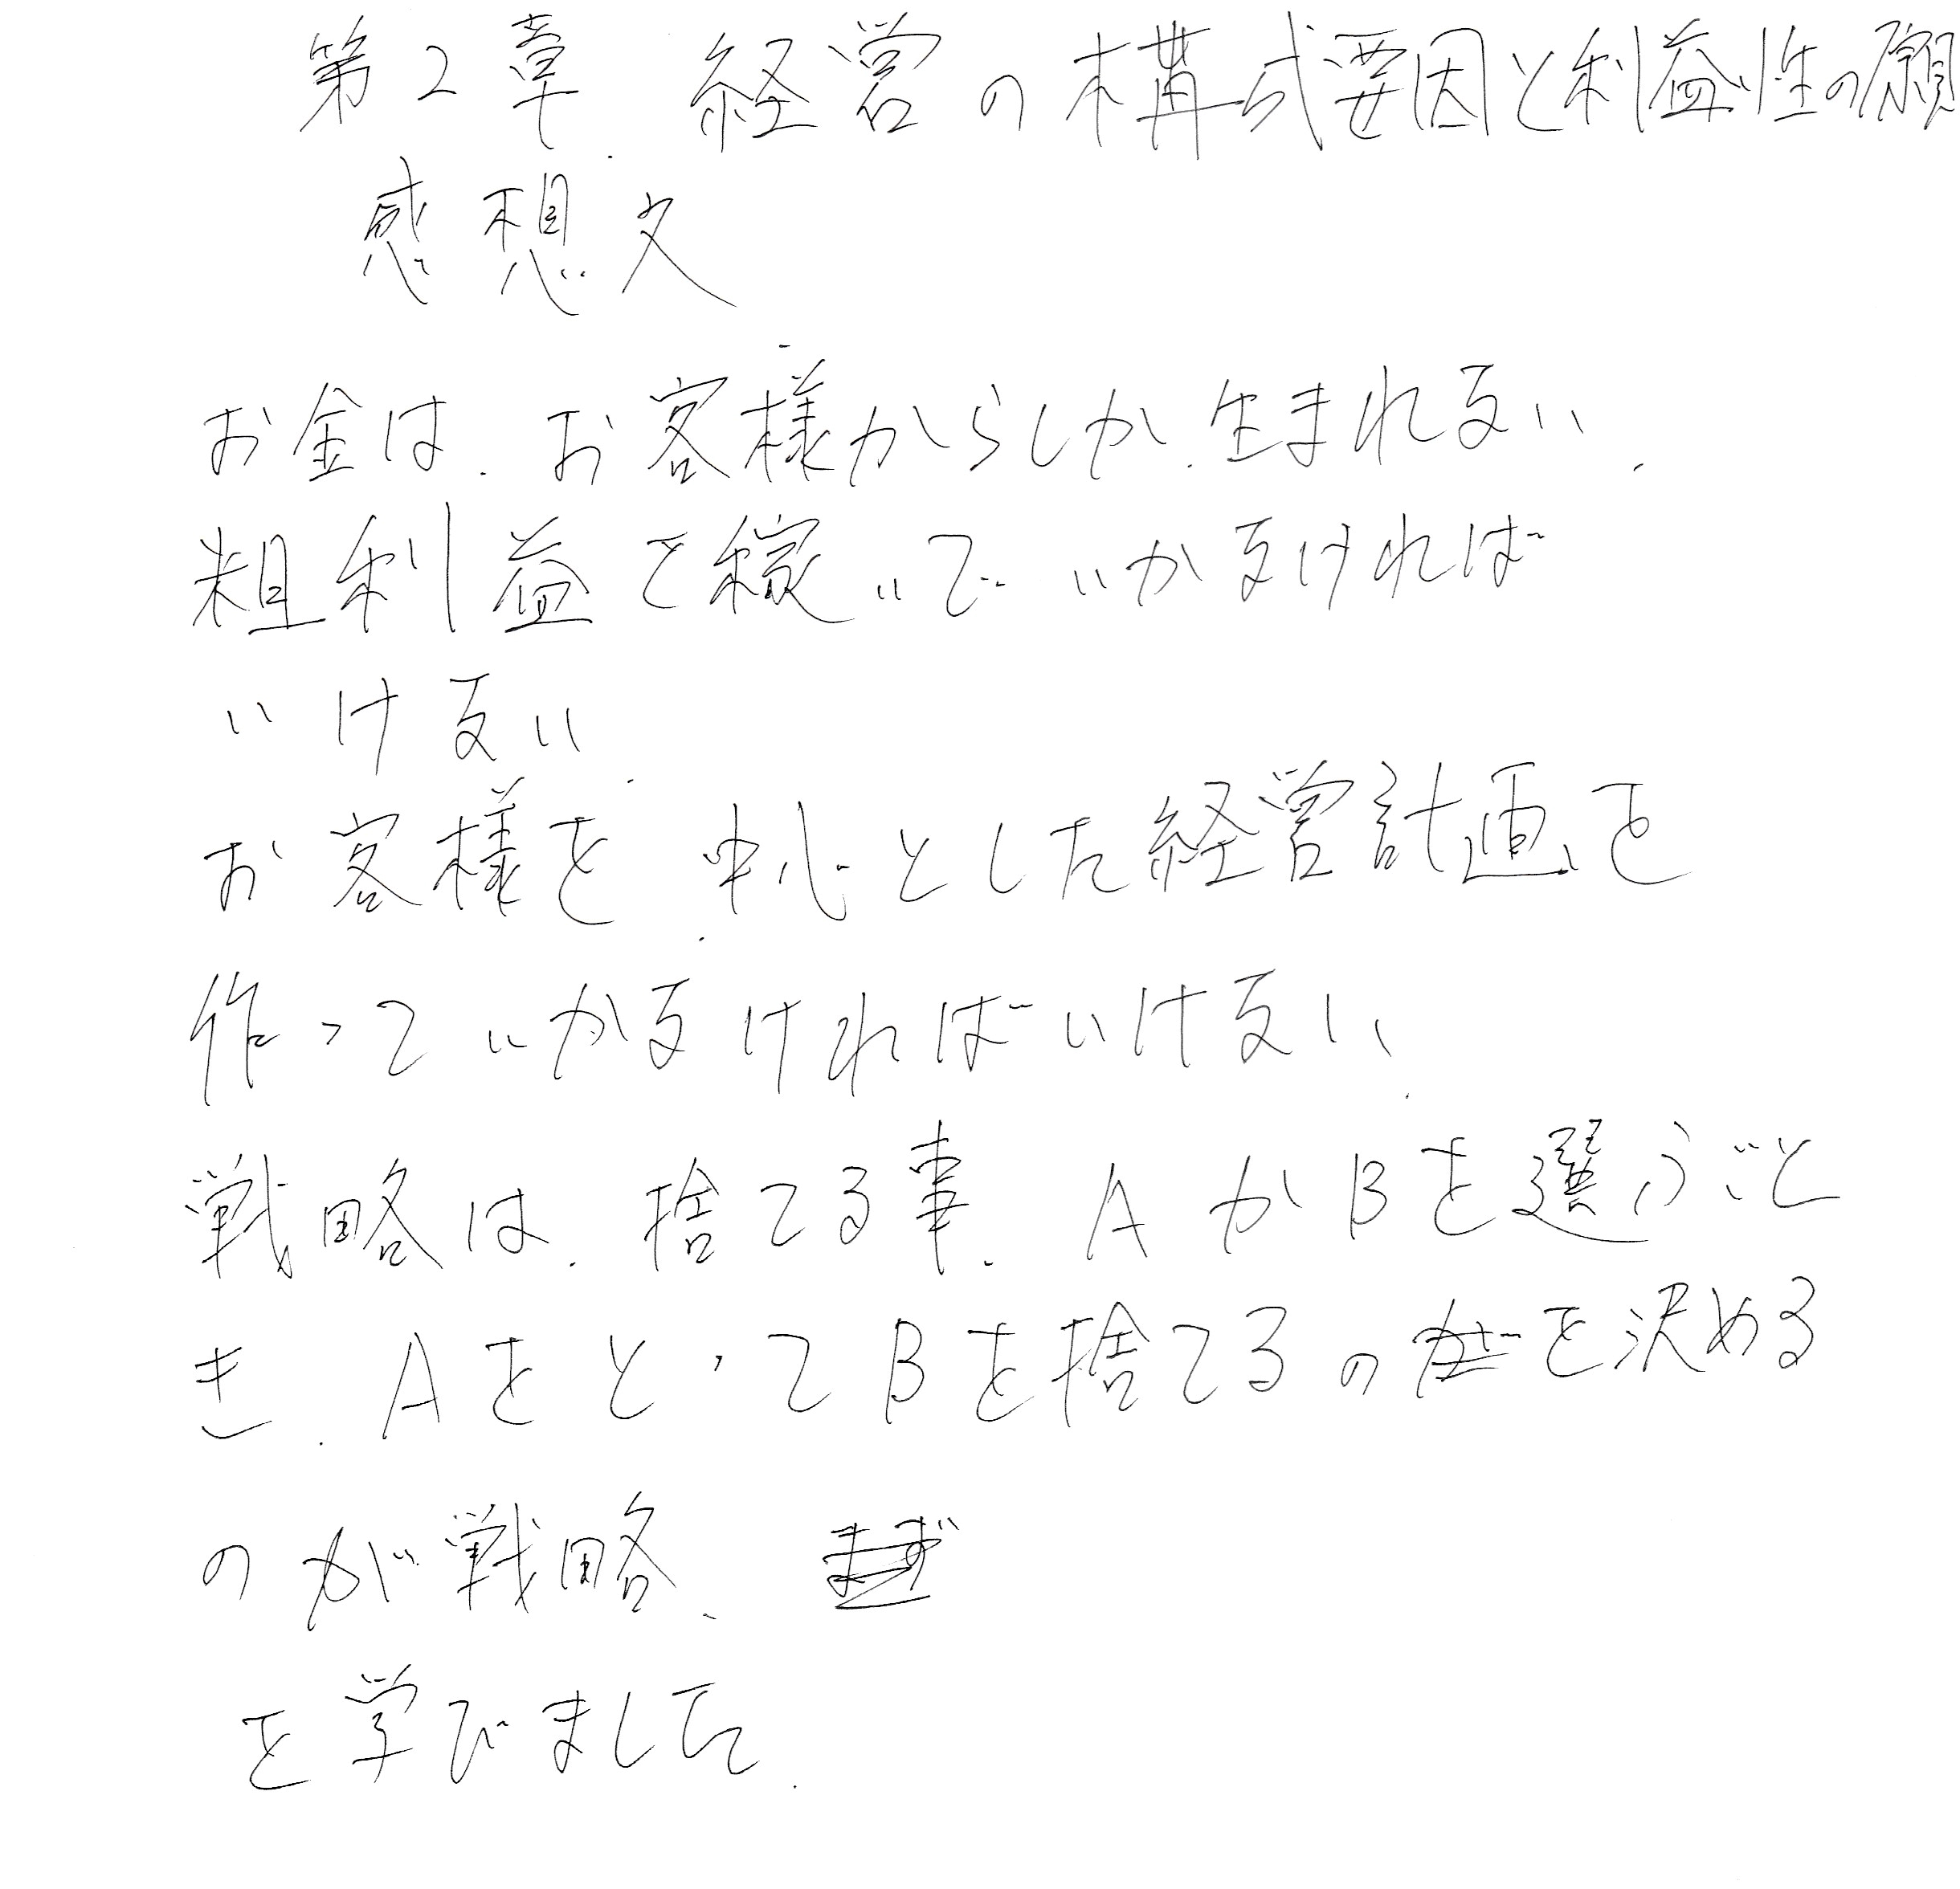 第2章.経営の構成要因と利益性の願
感想文
お金は.お客様からしか.生まれない.
粗利益を稼いでいかなければ
いけない.
お客様を.中心とした経営計画を
作っていかなければいけない.
戦略は.捨てる事.AかBを選ぶごと
き.AをとってBを捨てるのを決める
のが戦略.
を学びました.